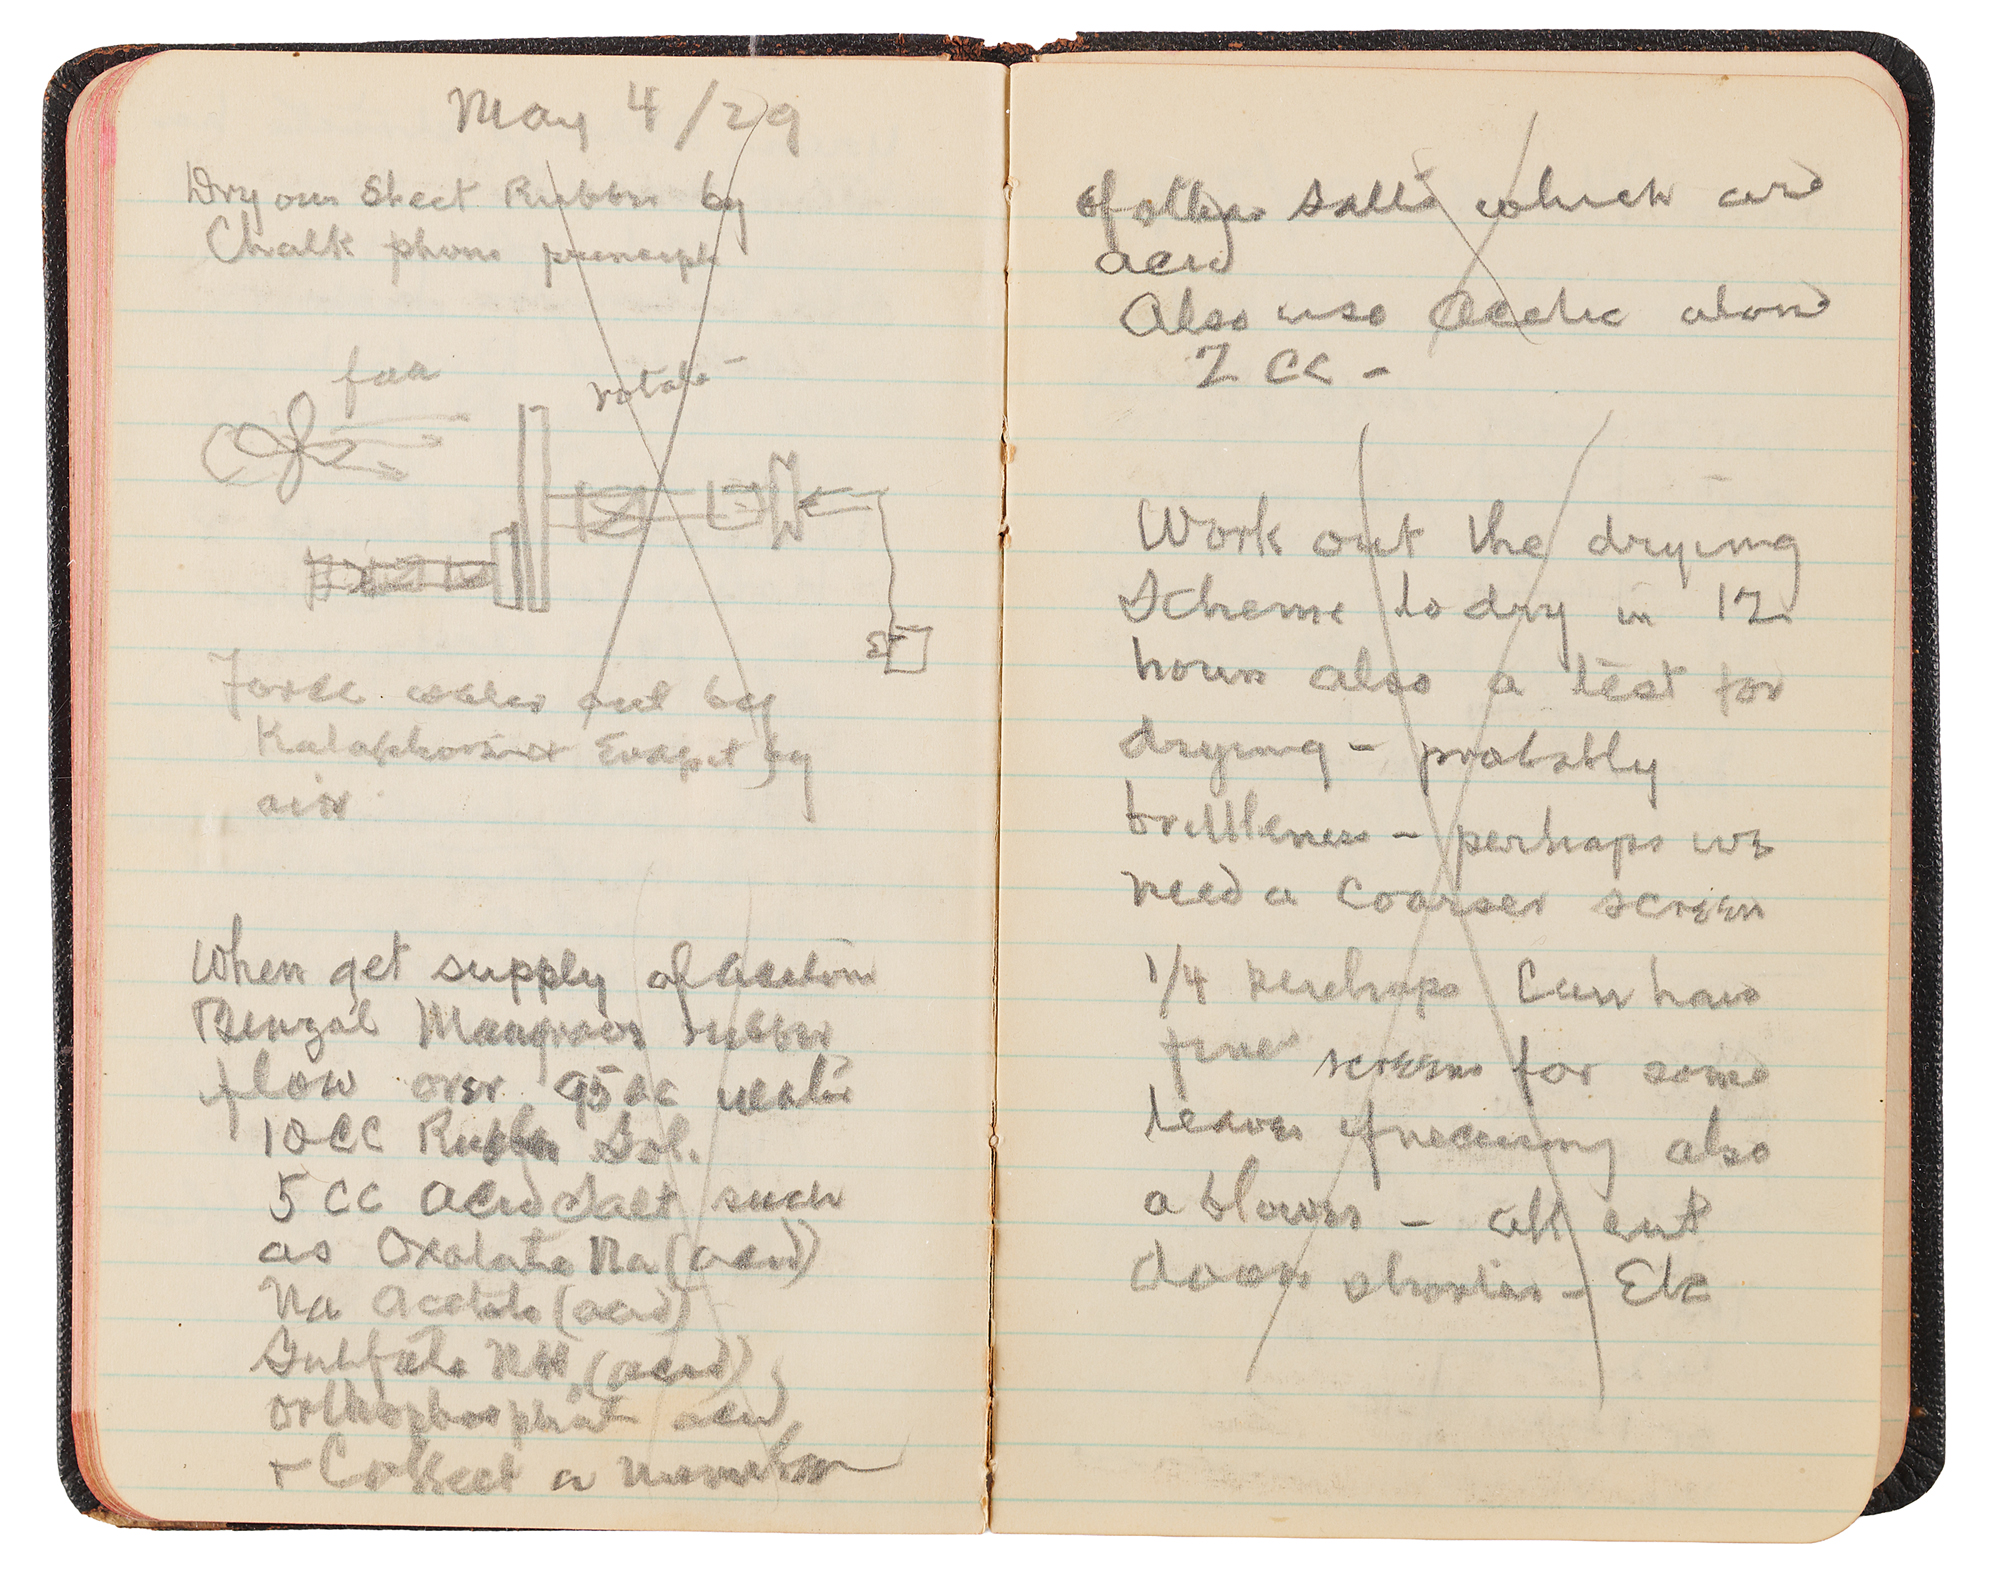 May 4/29
Dry our Sheet Rubber by
Chalk phone principle
fan
rotate
Force water out by
Evapit by
air
When get supply of acetone
Benzol Mangrove rubber
flow over 95 cc water
10 CC Rubber Sol.
5 CC acid salt such
as Oxalate Na (acid)
Na Acetate (acid)
Sulfate NH4 (acid)
orthophosphat acid
+ Collect a number
of other salts which are
acid
Also use Acetic alone
2 CC -
Work out the drying
Scheme to dry in 12
hours also a test for
drying - probably
brittleness - perhaps we
need a coarser screen
1/4 perhaps Can have
finer screens for some
leaves if necessary also
a blower - all cut
down shorter - Etc